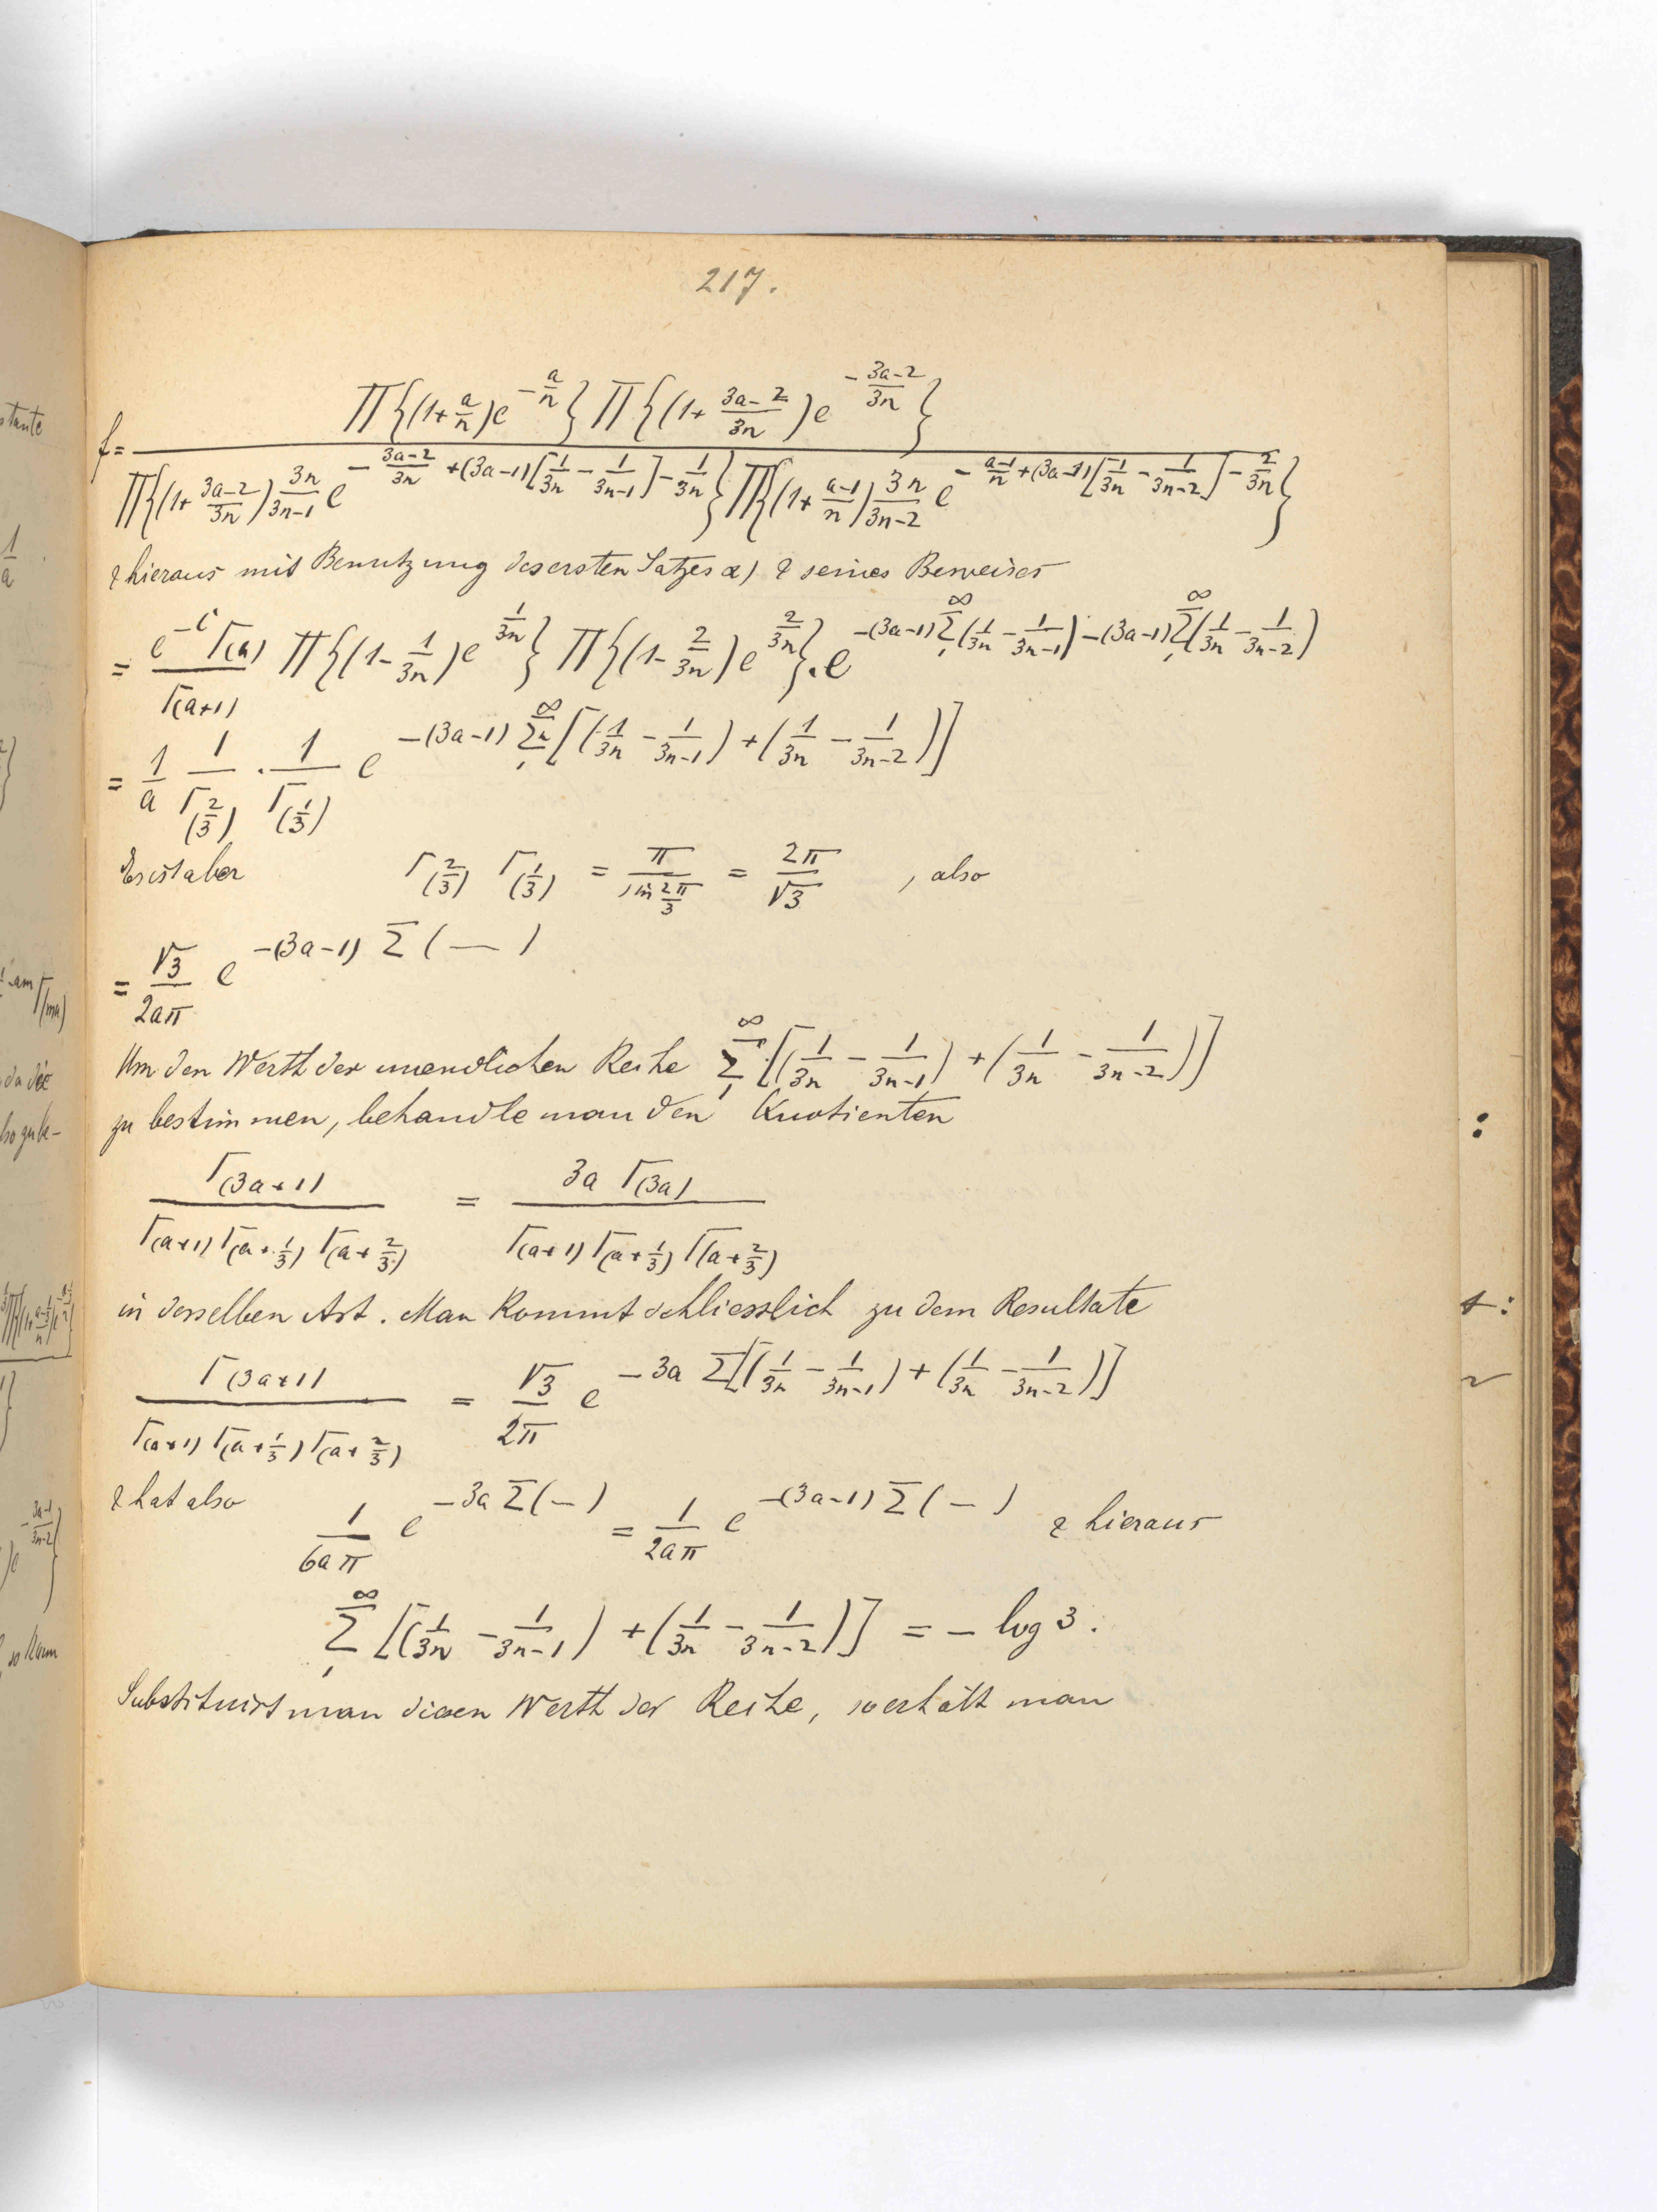 217.
f = \frac{\Pi\{(1+\frac{a}{n})e^{-\frac{a}{n}}\} \Pi\{(1+\frac{3a-2}{3n})e^{-\frac{3a-2}{3n}}\}}{\Pi\{(1+\frac{3a-2}{3n})\frac{3n}{3n-1} e^{-\frac{3a-2}{3n}+(3a-1)[\frac{1}{3n}-\frac{1}{3n-1}]-\frac{1}{3n}}\} \Pi\{(1+\frac{a-1}{n})\frac{3n}{3n-2} e^{-\frac{a-1}{n}+(3a-1)[\frac{1}{3n}-\frac{1}{3n-2}]-\frac{2}{3n}}\}}
& hieraus mit Benutzung des ersten Satzes α) & seines Beweises
= \frac{e^{-C}Γ(a)}{Γ(a+1)} \Pi\{(1-\frac{1}{3n})e^{\frac{1}{3n}}\} \Pi\{(1-\frac{2}{3n})e^{\frac{2}{3n}}\} . e^{-(3a-1)\sum_1^∞(\frac{1}{3n}-\frac{1}{3n-1})-(3a-1)\sum_1^∞(\frac{1}{3n}-\frac{1}{3n-2})}
= \frac{1}{a} \frac{1}{Γ(\frac{2}{3})} . \frac{1}{Γ(\frac{1}{3})} e^{-(3a-1)\sum_1^∞[(\frac{1}{3n}-\frac{1}{3n-1})+(\frac{1}{3n}-\frac{1}{3n-2})]}
Es ist aber Γ(\frac{2}{3}) Γ(\frac{1}{3}) = \frac{π}{sin\frac{2π}{3}} = \frac{2π}{√3} , also
= \frac{√3}{2aπ} e^{-(3a-1) Σ(—)}
Um den Werth der unendlichen Reihe \sum_1^∞[(\frac{1}{3n}-\frac{1}{3n-1})+(\frac{1}{3n}-\frac{1}{3n-2})]
zu bestimmen, behandle man den Kuotienten
\frac{Γ(3a+1)}{Γ(a+1)Γ(a+\frac{1}{3})Γ(a+\frac{2}{3})} = \frac{3a Γ(3a)}{Γ(a+1)Γ(a+\frac{1}{3})Γ(a+\frac{2}{3})}
in derselben Art. Man kommt schliesslich zu dem Resultate
\frac{Γ(3a+1)}{Γ(a+1)Γ(a+\frac{1}{3})Γ(a+\frac{2}{3})} = \frac{√3}{2π} e^{-3a Σ[(\frac{1}{3n}-\frac{1}{3n-1})+(\frac{1}{3n}-\frac{1}{3n-2})]}
& hat also \frac{1}{6aπ} e^{-3a Σ(—)} = \frac{1}{2aπ} e^{-(3a-1) Σ(—)} & hieraus
\sum_1^∞[(\frac{1}{3n}-\frac{1}{3n-1})+(\frac{1}{3n}-\frac{1}{3n-2})] = - log 3.
Substituirt man diesen Werth der Reihe, so erhält man